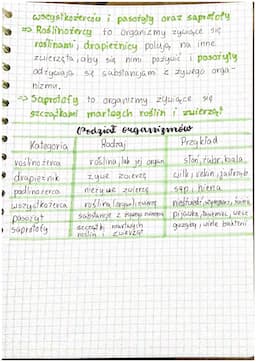 wszystkożercia i pasożyty oraz saprofofy
⇒ Roślinożercy to organizmy żywiące się
roślinami, drapieżnicy polują na inne
zwierzęta, aby się nimi pożywić i pasożyty
odżywiają się substancjami z żywego orga-
nizmu.
⇒ Saprofofy to organizmy żywiące się
szczątkami martwych roślin i zwierząt
Podział organizmów
Kategoria Rodzaj Przykład
roślinożerca roślina, lub jej organ słoń, żubr, koala
drapieżnik żywe zwierzę wilk, rekin, jastrząb
padlinożerca nieżywe zwierzę sęp, hiena
wszystkożerca roślina, zwierzę niedźwiedź
pasożyt substancje z żywego pijawka, tasiemiec, wesz
saprofofy szczątki martwych roślin i zwierząt grzyby, wiele bakterii